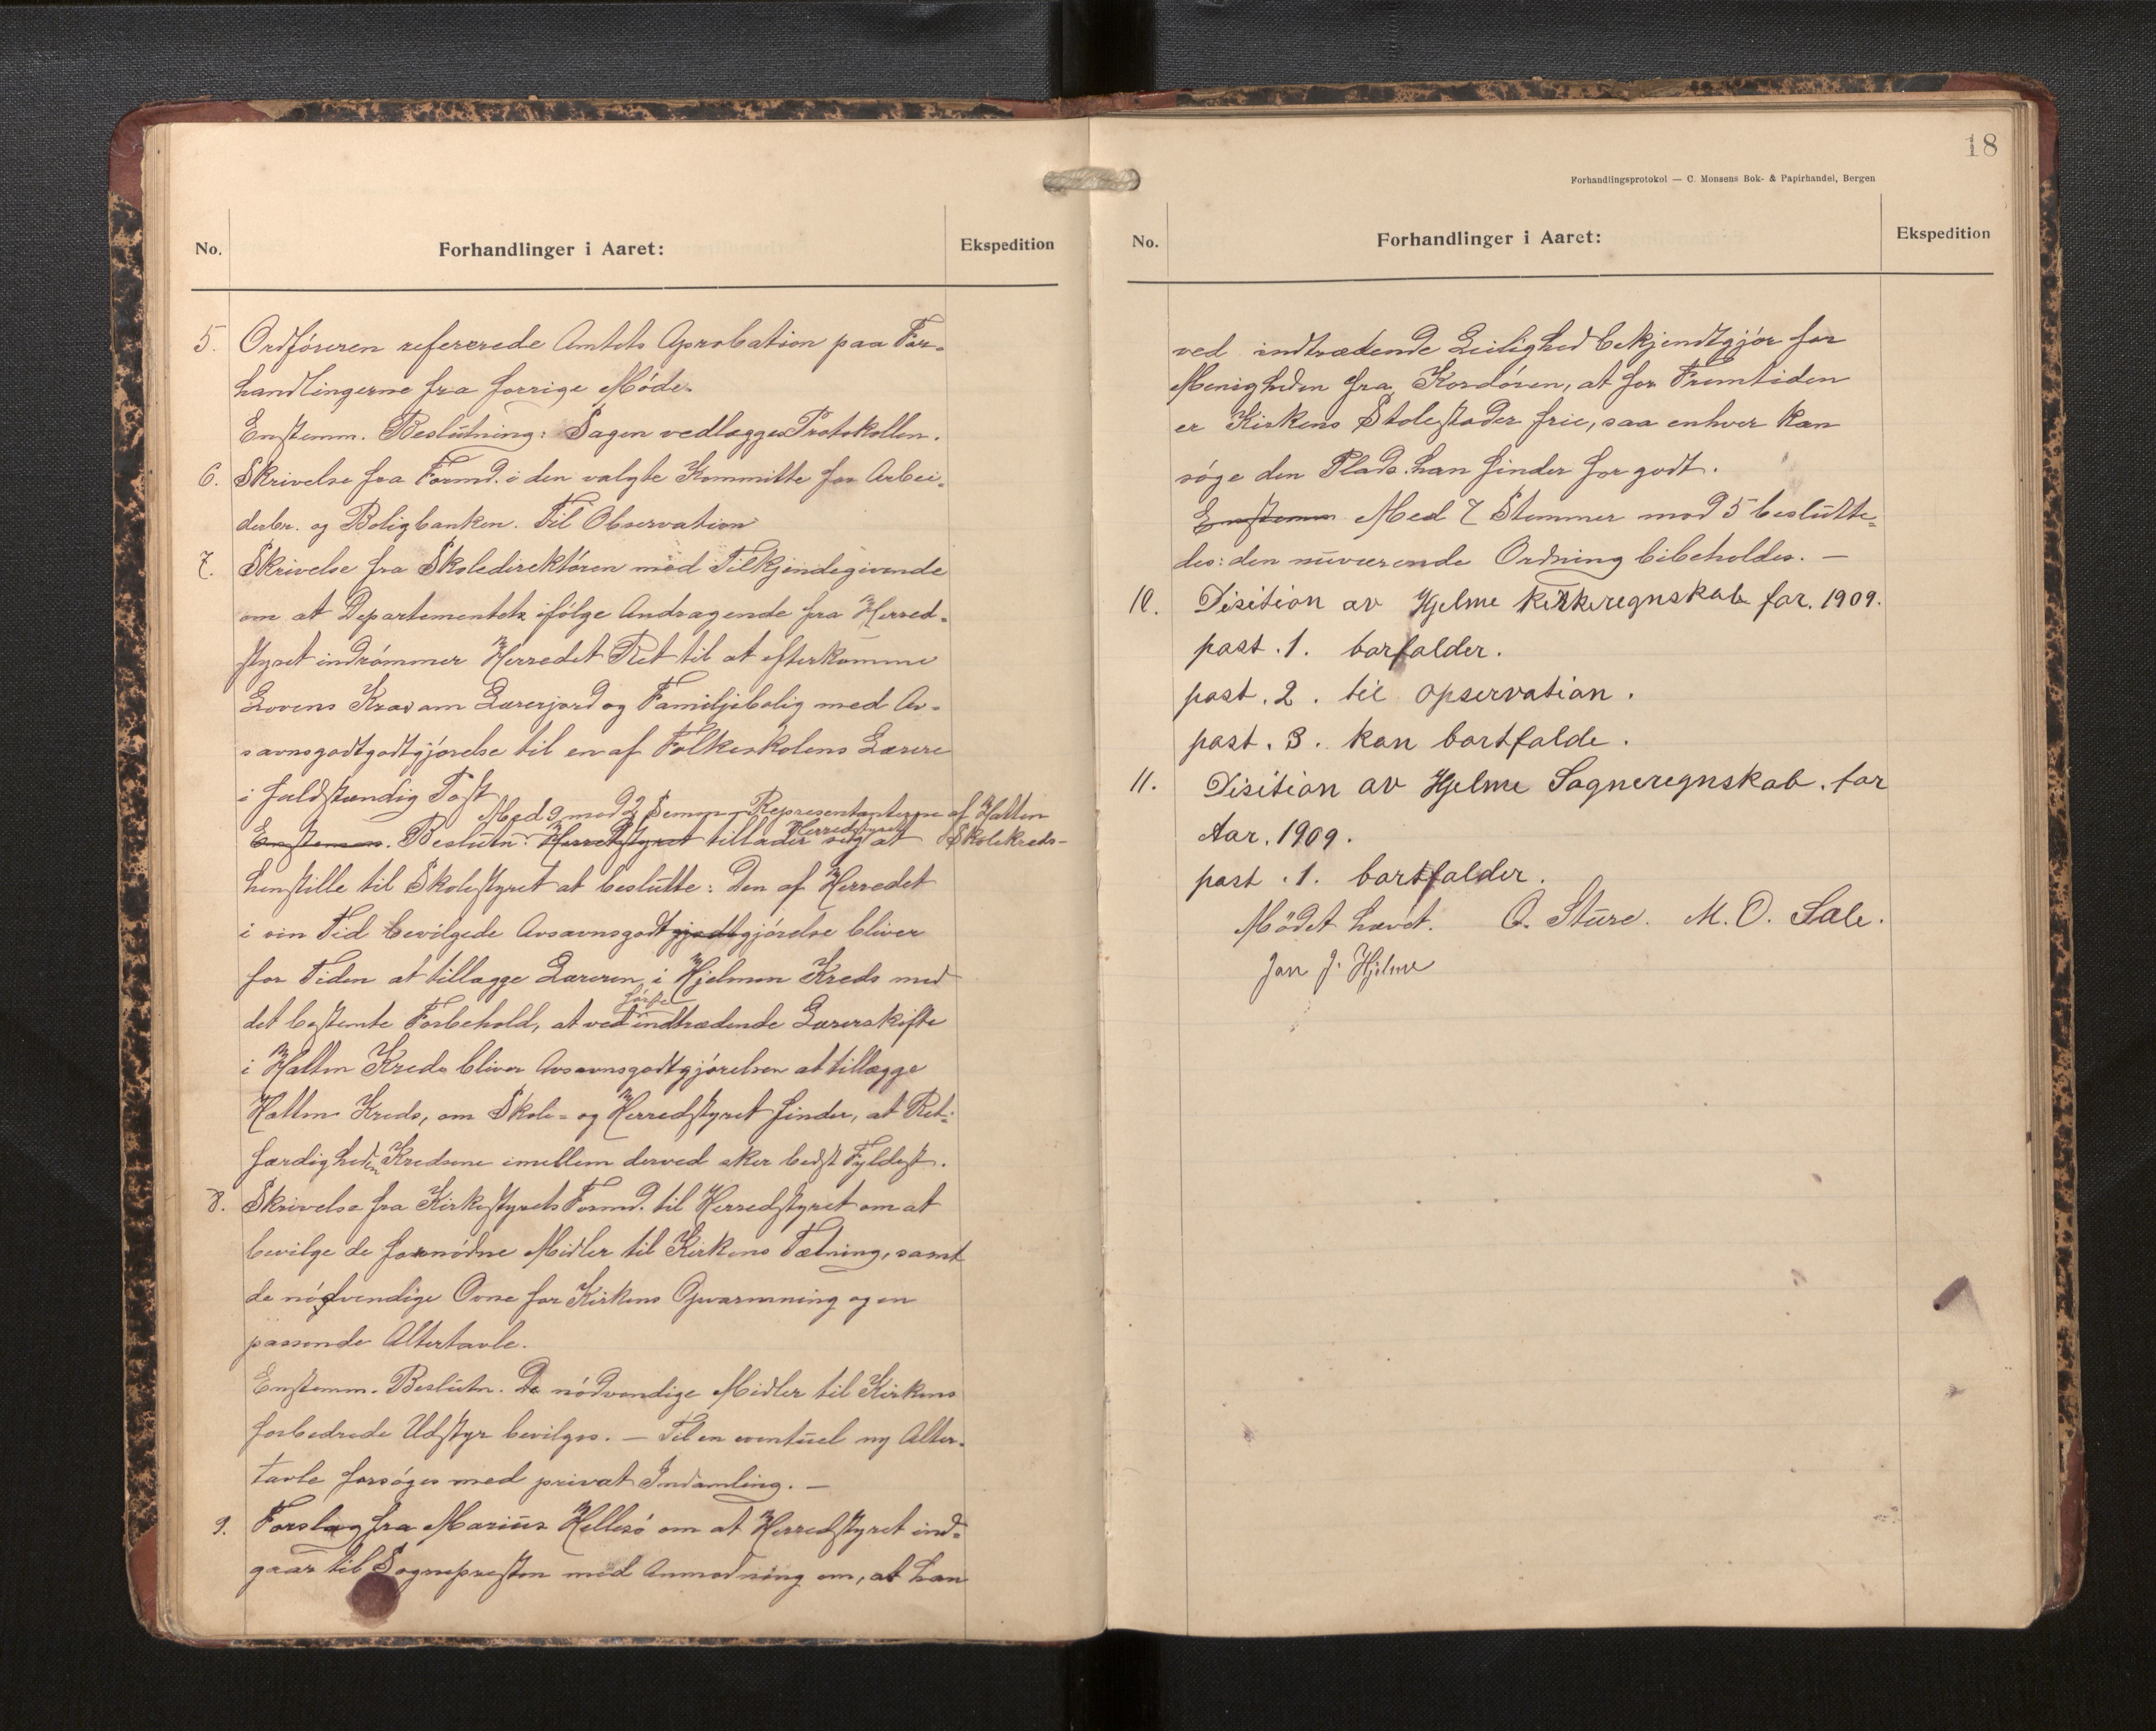 No. Forhandlinger i Aaret: Ekspedition
5. Ordføreren refererede Amtets Aprobation paa For-
handlingerne fra forrige Møde.
Enstemm. Beslutning: Sagen vedlægges Protokollen.
6. Skrivelse fra Formd. i den valgte Kommitte for Arbei-
derbr. og Boligbanken. Til Observation
7. Skrivelse fra Skoledirektøren med Tilkjendegivende
om at Departementet ifølge Andragende fra Herred-
styret indrømmer Herredet Ret til at efterkomme
Lovens Krav om Lærerjord og Familjebolig med Av-
savnsgodtgodtgjørelse til en af Folkeskolens Lærere
i fuldstændig Post
Med 9 mod 2 Stemm. Representanterne af Hatten
Enstemm. Beslutn: Herredstyret tillader sig at Skolekreds-
Herredstyret
henstille til Skolestyret at beslutte: Den af Herredet
i sin Tid bevilgede Avsavnsgodtgjodtgjørelse bliver
for Tiden at tillægge Læreren i Hjelmen Kreds med
første
det bestemte Forbehold, at ved indtrædende Lærerskifte
i Halten Kreds bliver Avsavnsgodtgjørelsen at tillægge
Halten Kreds, om Skole- og Herredstyret finder, at Ret-
færdigheden Kredsene imellem derved sker bedst Fyldest.
8. Skrivelse fra Kirkestyrets Formd. til Herredstyret om at
bevilge de fornødne Midler til Kirkens Tætning, samt
de nødvendige Ovne for Kirkens Opvarmning og en
passende Altertavle.
Enstemm. Beslutn. De nødvendige Midler til Kirkens
forbedrede Udstyr bevilges. — Til en eventuel ny Alter-
tavle forsøges med privat Indsamling. —
9. Forslag fra Marius Hellesø om at Herredstyret ind-
gaar til Sognepresten med Anmodning om, at han
18
Forhandlingsprotokol — C. Monsens Bok- & Papirhandel, Bergen
No. Forhandlinger i Aaret: Ekspedition
ved indtrædende Leilighed bekjendtgjør for
Menigheden fra Kordøren, at for Fremtiden
er Kirkens Stolestader frie, saa enhver kan
søge den Plads han finder for godt.
Enstemm Med 7 Stemmer mod 5 beslutte-
des: den nuværende Ordning bibeholdes. —
10. Disition av Hjelme kirkeregnskab for. 1909.
post. 1. borfalder.
post. 2. til opservation.
post. 3. kan bortfalde.
11. Disition av Hjelme Sogneregnskab. for
Aar. 1909.
post. 1. bortfalder.
Mødet hævet. O. Sture. M. O. Sæle.
Jon J. Hjelme